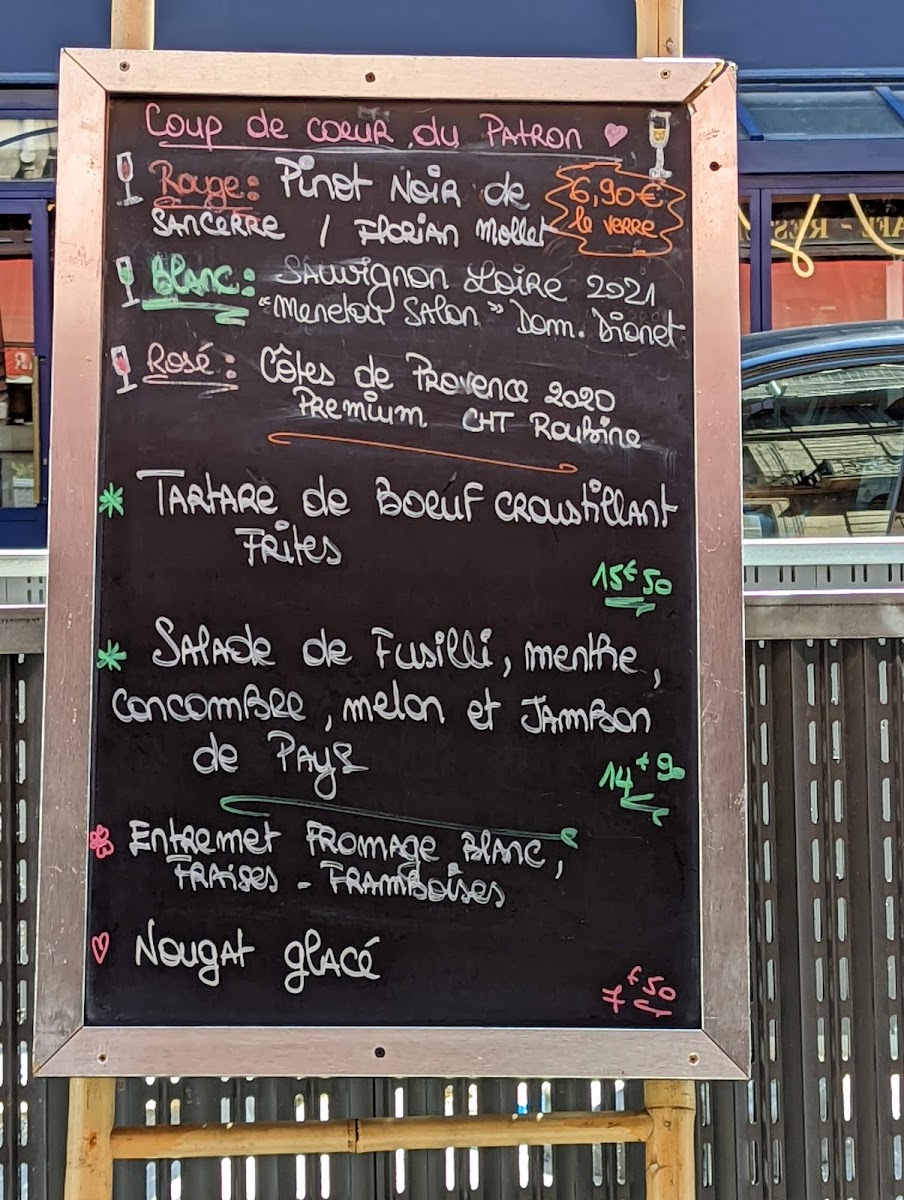 Coup de coeur du Patron
Rouge: Pinot Noir de
Sancerre / Florian Mollet
6,90€
le verre
Blanc: Sauvignon Loire 2021
"Menetou Salon" Dom. Dionet
Rosé: Côtes de Provence 2020
Premium CHT Roubine
Tartare de Boeuf croustillant
Frites
15€50
Salade de Fusilli, menthe,
concombre, melon et Jambon
de Pays
14€90
Entremet Fromage Blanc,
Fraises - Framboises
Nougat glacé
7€50